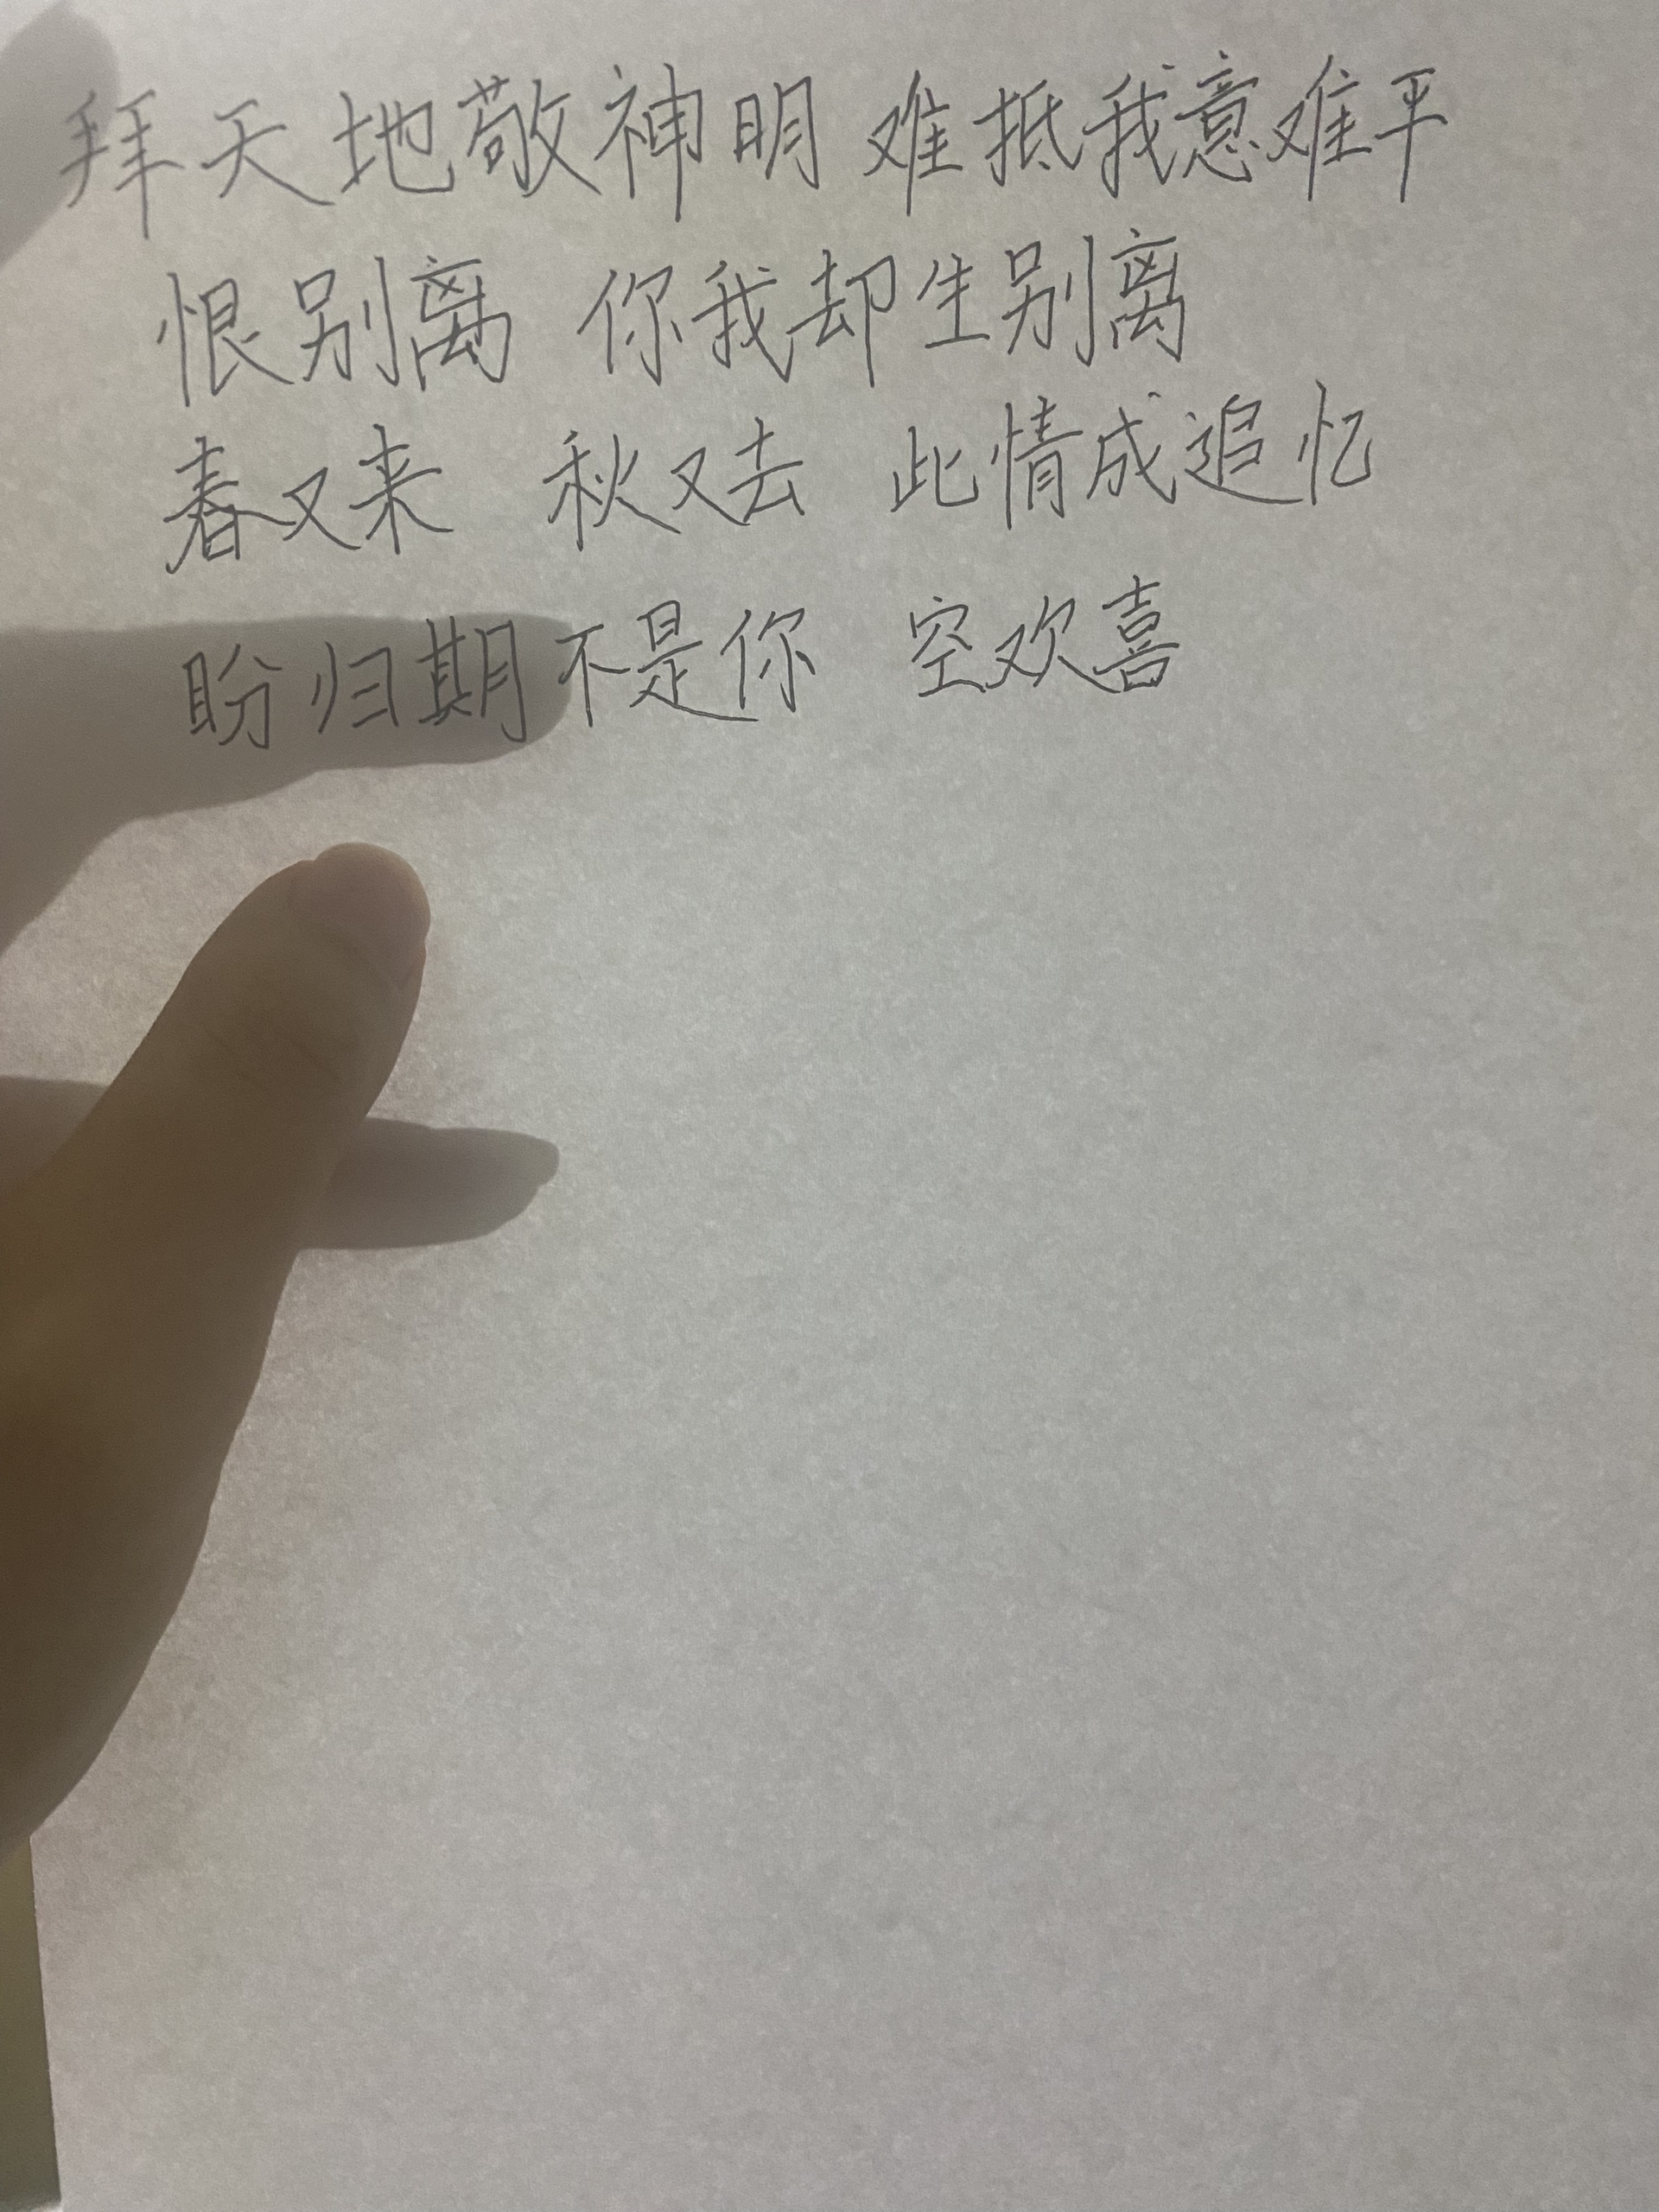 拜天地敬神明 难抵我意难平
恨别离 你我却生别离
春又来 秋又去 此情成追忆
盼归期不是你 空欢喜